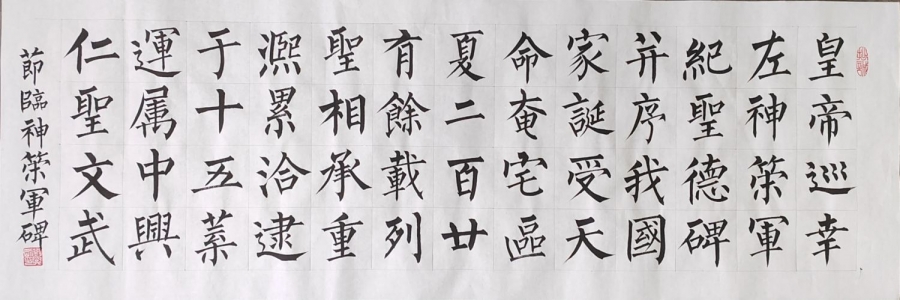 皇帝巡幸
左神策軍
紀聖德碑
并序我國
家誕受天
命奄宅區
夏二百廿
有餘載列
聖相承重
熈累洽逮
于十五葉
運属中興
仁聖文武
節臨神策軍碑